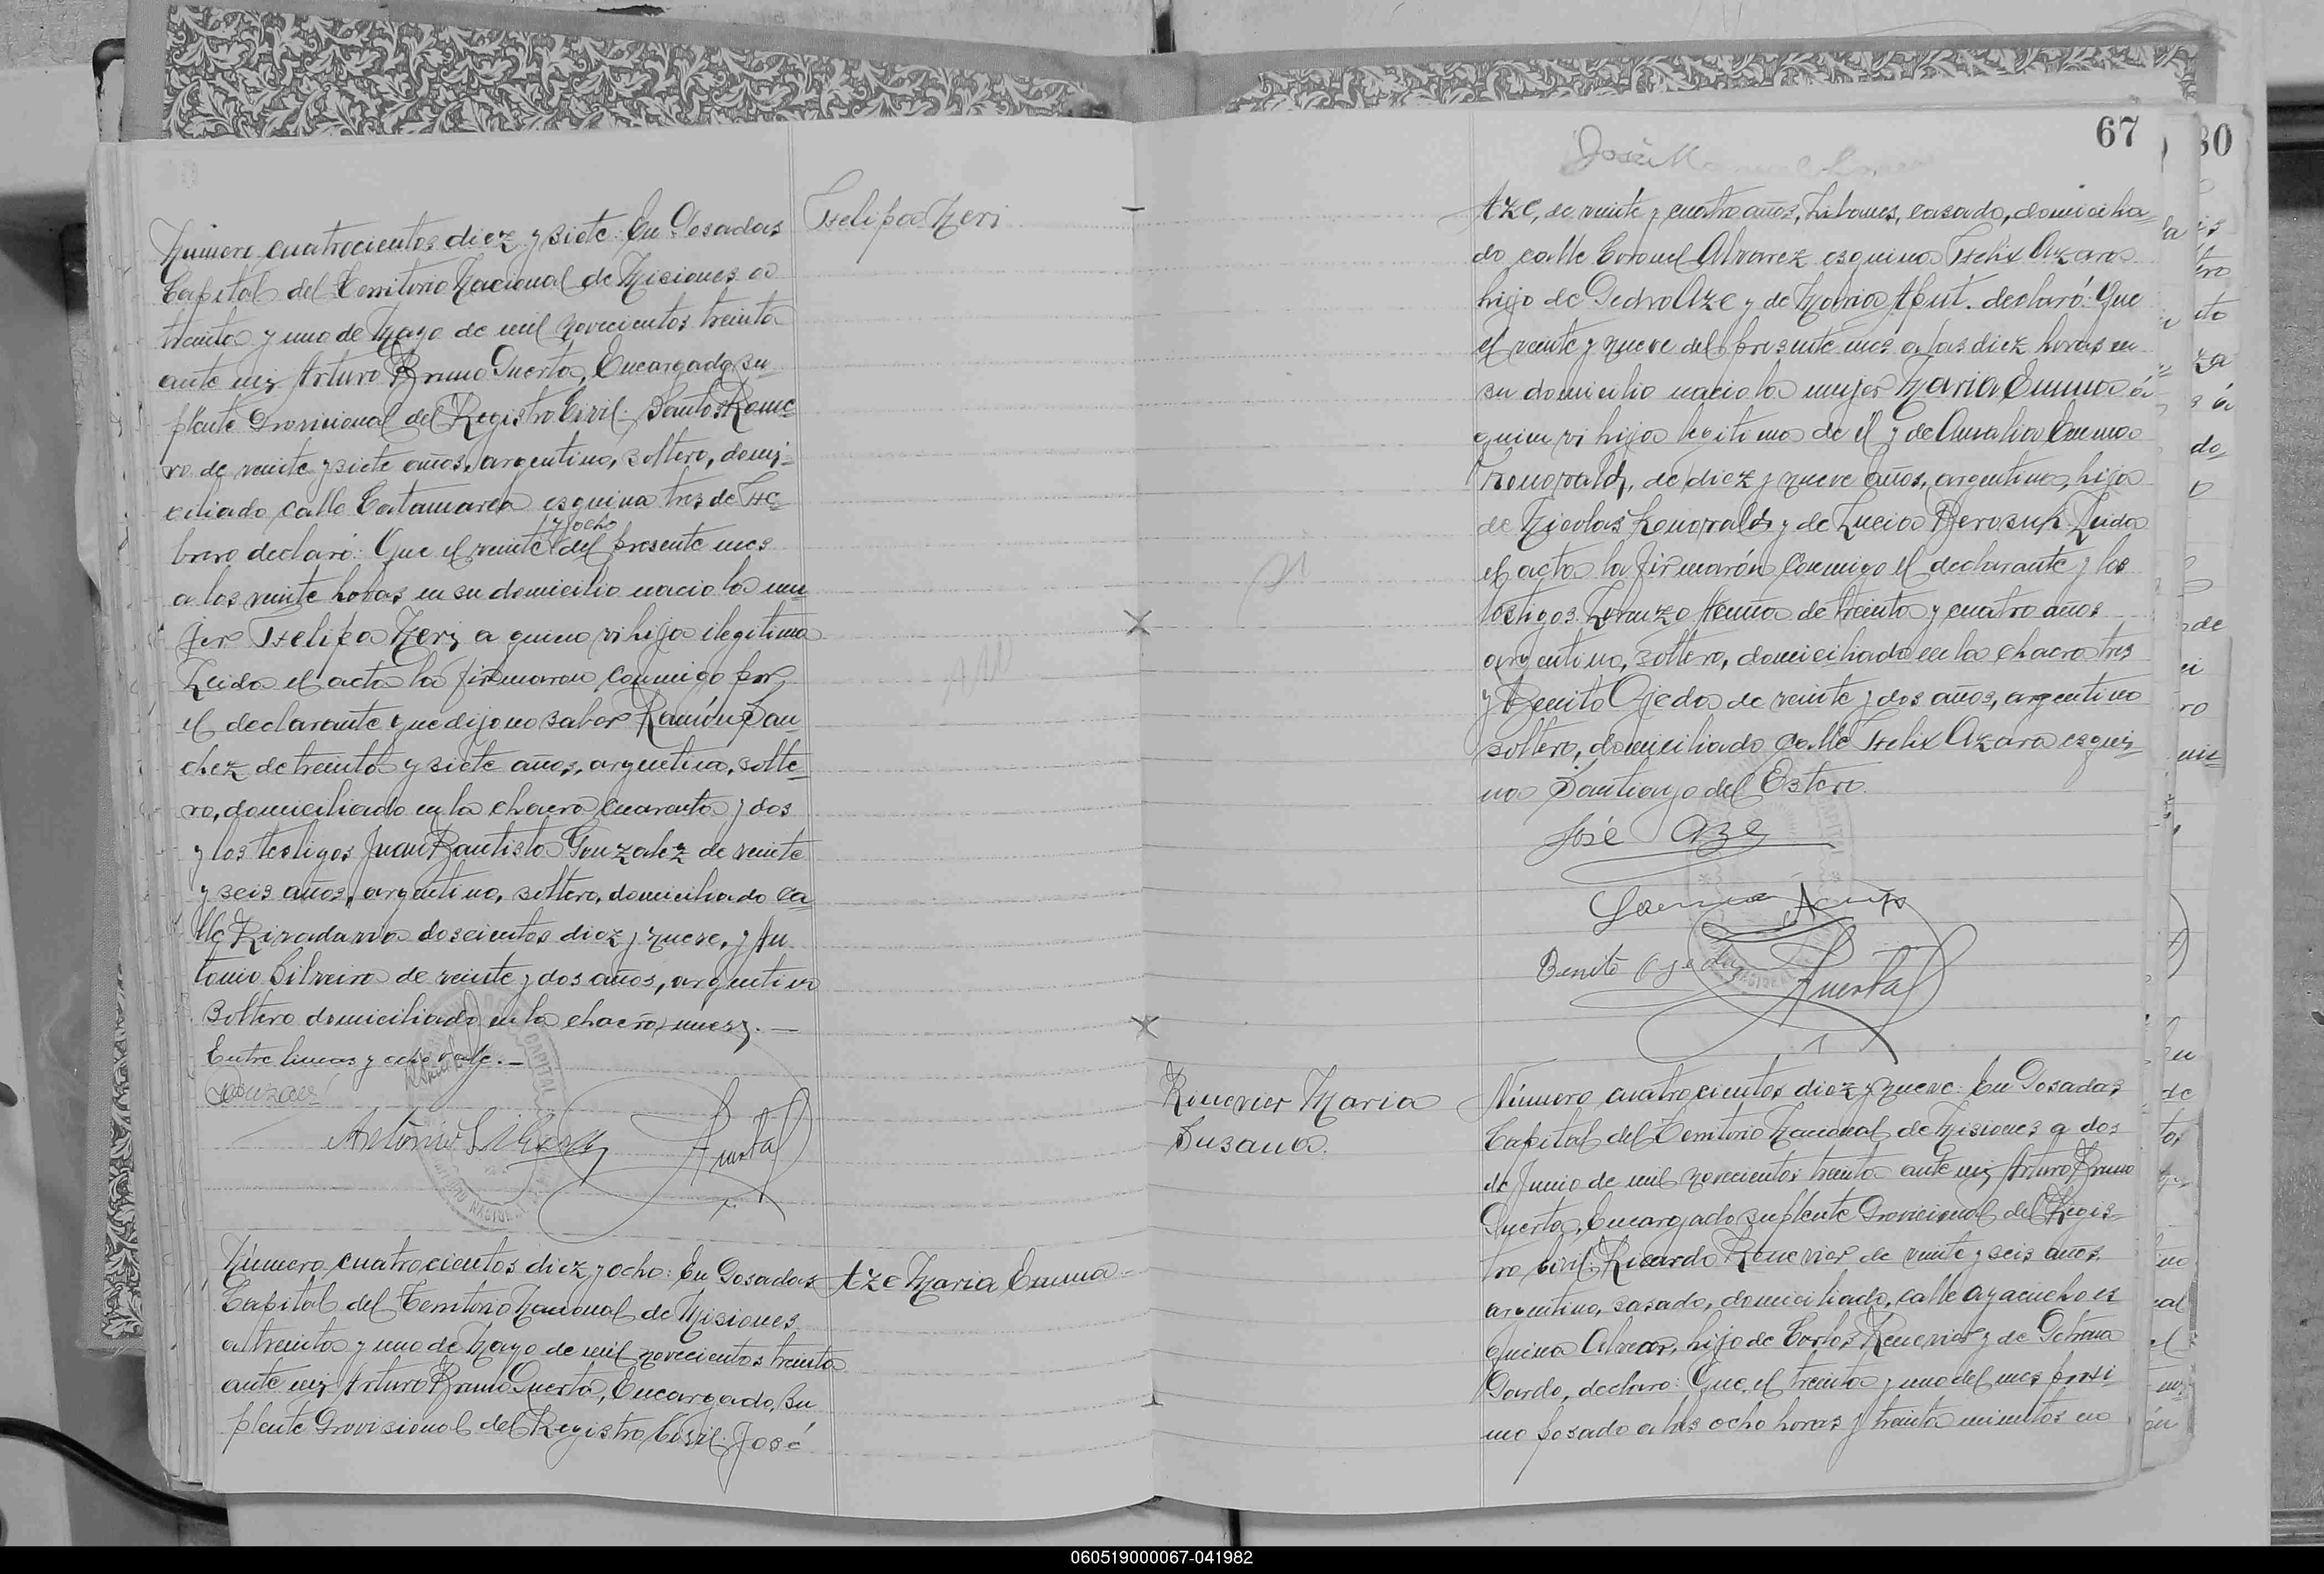 Número cuatrocientos diez y siete: En Posadas
Capital del Territorio Nacional de Misiones a
treinta y uno de Mayo de mil novecientos treinta
ante mi Arturo Bruno Puerta, Encargado su-
plente Provicional del Registro Civil. Santos Rome-
ro de veinte y siete años, argentino, soltero, domi-
ciliado calle Catamarca esquina tres de Fe-
y ocho
brero declaró: Que el veinte del presente mes
a las veinte horas en su domicilio nacio la mu
jer Felipa Neri a quien vi hija ilegitima
Leida el acta la firmaron conmigo por
el declarante que dijo no saber Ramón San-
chez de treinta y siete años, argentino, solte-
ro, domiciliado en la chacra cuarenta y dos
y los testigos Juan Bautista Gonzalez de veinte
y seis años, argentino, soltero, domiciliado ca-
lle Rivadavia doscientos diez y nueve, y An
tonio Silveira de veinte y dos años, argentino
soltero domiciliado en la chacra nueve. —
Entre lineas y ocho vale. —
Antonio Silveira
Puerta
Felipa Neri
Número cuatrocientos diez y ocho: En Posadas
Capital del Territorio Nacional de Misiones
a treinta y uno de Mayo de mil novecientos treinta
ante mi Arturo Bruno Puerta, Encargado Su
plente Provisional del Registro Civil. José
Aze Maria Emma
67
30
José Manuel
Aze, de veinte y cuatro años, Libanes, casado, domicilia-
do calle Coronel Alvarez esquina Felix Azara
hijo de Pedro Aze y de Maria Aput. declaró: Que
el veinte y nueve del presente mes a las diez horas en
su domicilio nacio la mujer Maria Emma á
quien vi hija legitima de él y de Amalia Emma
de diez y nueve años, argentina, hija
de Nicolas y de Lucia Leida
el acta la firmarón conmigo el declarante y los
testigos Lorenzo Acuña de treinta y cuatro años
argentino, soltero, domiciliado en la chacra tres
y Benito Ojeda de veinte y dos años, argentino
soltero, domiciliado calle Felix Azara esqui-
na Santiago del Estero.
José Aze
Acuña
Benito Ojeda
Puerta
Renevier Maria
Susana.
Número cuatrocientos diez y nueve: En Posadas,
Capital del Territorio Nacional de Misiones a dos
de Junio de mil novecientos treinta ante mi Arturo Bruno
Puerta, Encargado suplente Provicional del Regis-
tro Civil. Ricardo Renevier de veinte y seis años,
argentino, casado, domiciliado, calle Ayacucho es
quina Alvear, hijo de Carlos Renevier y de Petrona
Pardo, declaro: Que el treinta y uno del mes proxi-
mo pasado a las ocho horas y treinta minutos en
060519000067-041982